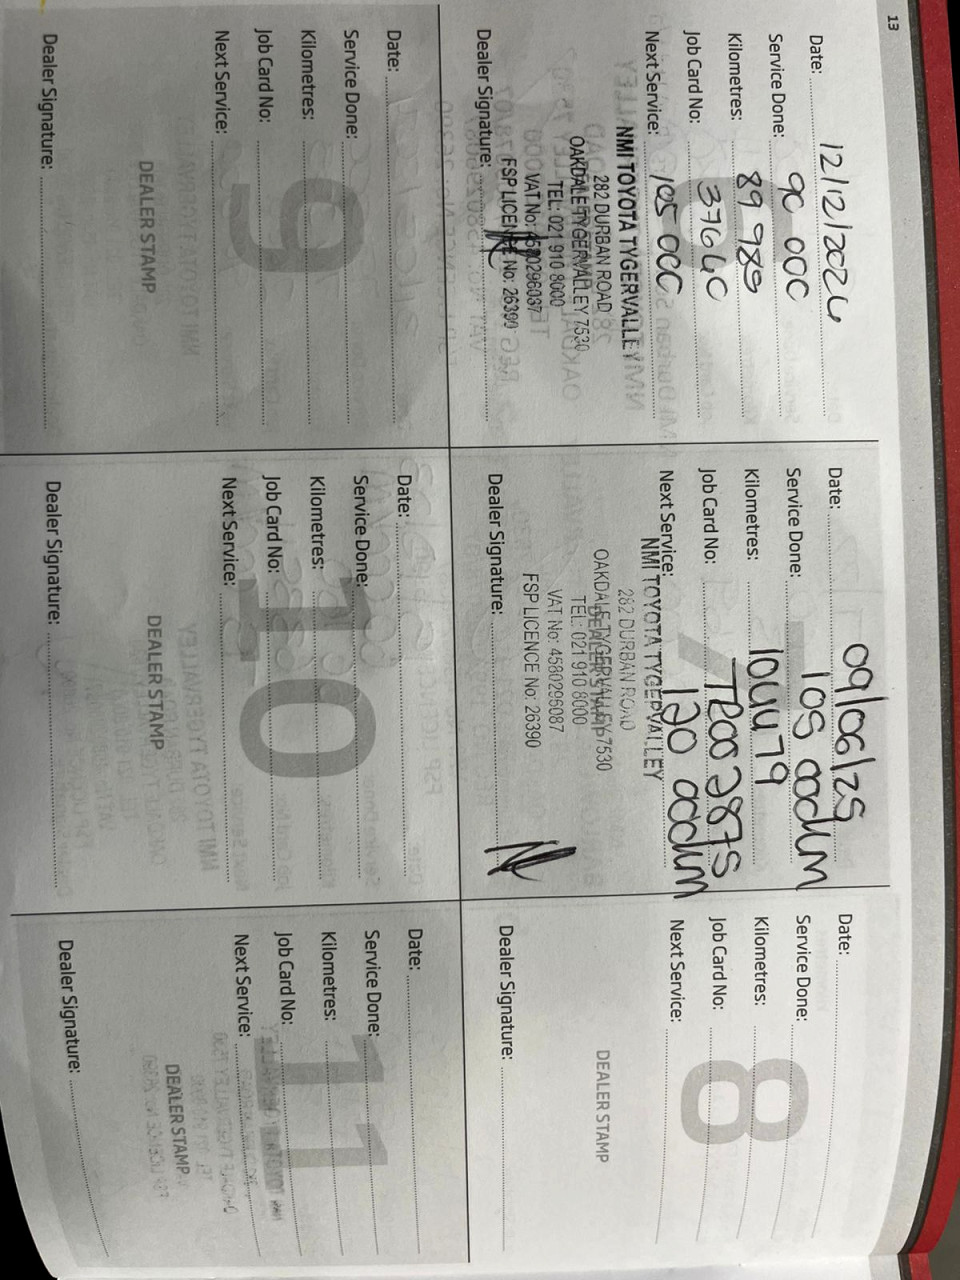 13
Date: 12/12/2024
Service Done: 90 000
Kilometres: 89 989
Job Card No: 37640
Next Service: 105 000
NMI TOYOTA TYGERVALLEY
282 DURBAN ROAD
OAKDALE TYGERVALLEY 7530
TEL: 021 910 8000
VAT No: 4580296087
FSP LICENCE No: 26390
Dealer Signature:
7
Date: 09/06/25
Service Done: 105 000km
Kilometres: 104479
Job Card No: TR002875
Next Service: 120 000km
NMI TOYOTA TYGERVALLEY
282 DURBAN ROAD
DEALER STAMP
OAKDALE TYGERVALLEY 7530
TEL: 021 910 8000
VAT No: 4580296087
FSP LICENCE No: 26390
Dealer Signature:
8
Date:
Service Done:
Kilometres:
Job Card No:
Next Service:
DEALER STAMP
Dealer Signature:
9
Date:
Service Done:
Kilometres:
Job Card No:
Next Service:
DEALER STAMP
Dealer Signature:
10
Date:
Service Done:
Kilometres:
Job Card No:
Next Service:
DEALER STAMP
Dealer Signature:
11
Date:
Service Done:
Kilometres:
Job Card No:
Next Service:
DEALER STAMP
Dealer Signature: